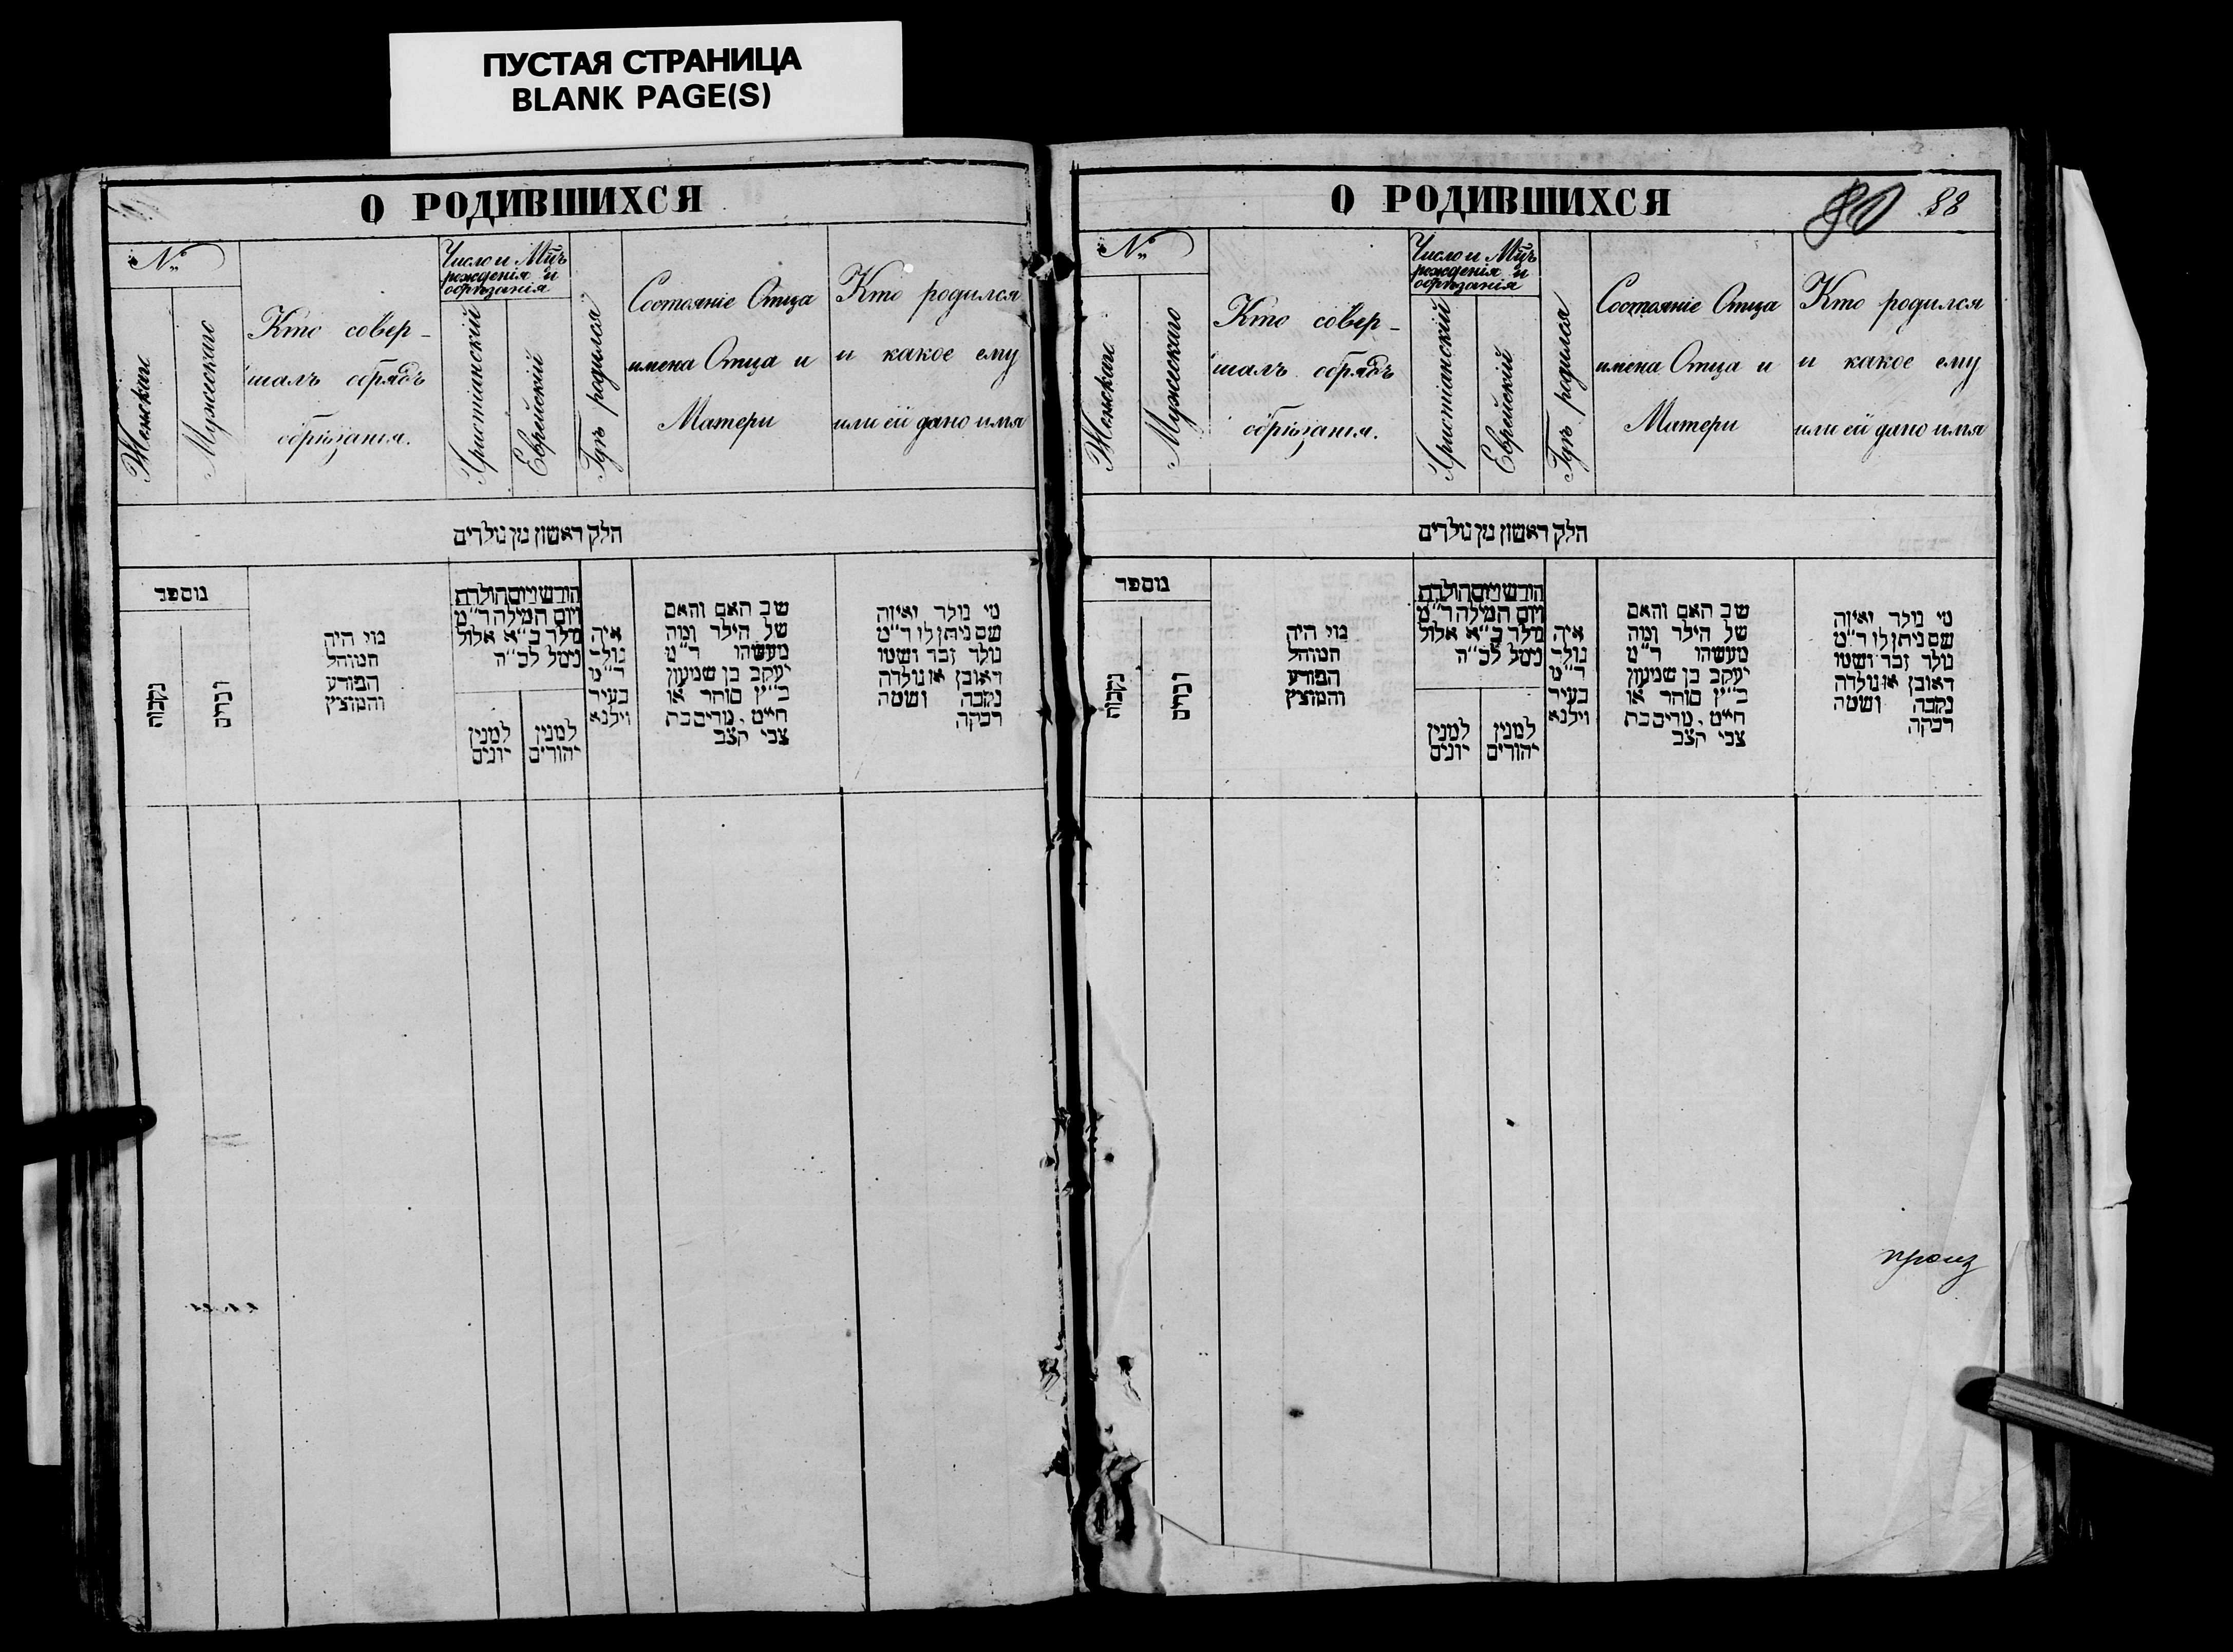 ПУСТАЯ СТРАНИЦА
BLANK PAGE(S)
О РОДИВШИХСЯ
№
Женскаго
Мужскаго
Кто совер-
шалъ обрядъ
обрѣзанія.
Число и Мцъ
рожденія и
обрѣзанія
Христіанскій
Еврейскій
Гдѣ родился
Состояніе Отца
имена Отца и
Матери
Кто родился
и какое ему
или ей дано имя
חלק ראשון מן נולדים
מספר
נקבות
זכרים
מי היה
המוהל
הפורע
והמוצץ
חודש ויום הולדת
ויום המילה ד״מ
נולד כ״א אלול
נימל לכ״ה
למנין
יונים
למנין
יהודים
איה
נולד
ד״מ
בעיר
ווילנא
שב האם והאם
של הילד ומה
מעשהו ד״מ
יעקב בן שמעון
כ״ץ סוחר או
חייט, מרים בת
צבי קצב
מי נולד ואיזה
שם ניתן לו ד״מ
נולד זכר ושמו
ראובן או נולדה
נקבה ושמה
רבקה
О РОДИВШИХСЯ
80 88
№
Женскаго
Мужескаго
Кто совер-
шалъ обрядъ
обрѣзанія.
Число и Мцъ
рожденія и
обрѣзанія
Христіанскій
Еврейскій
Гдѣ родился
Состояніе Отца
имена Отца и
Матери
Кто родился
и какое ему
или ей дано имя
חלק ראשון מן נולדים
מספר
נקבות
זכרים
מי היה
המוהל
הפורע
והמוצץ
חודש ויום הולדת
ויום המילה ד״מ
נולד כ״א אלול
נימל לכ״ה
למנין
יונים
למנין
יהודים
איה
נולד
ד״מ
בעיר
ווילנא
שב האם והאם
של הילד ומה
מעשהו ד״מ
יעקב בן שמעון
כ״ץ סוחר או
חייט, מרים בת
צבי קצב
מי נולד ואיזה
שם ניתן לו ד״מ
נולד זכר ושמו
ראובן או נולדה
נקבה ושמה
רבקה
произ